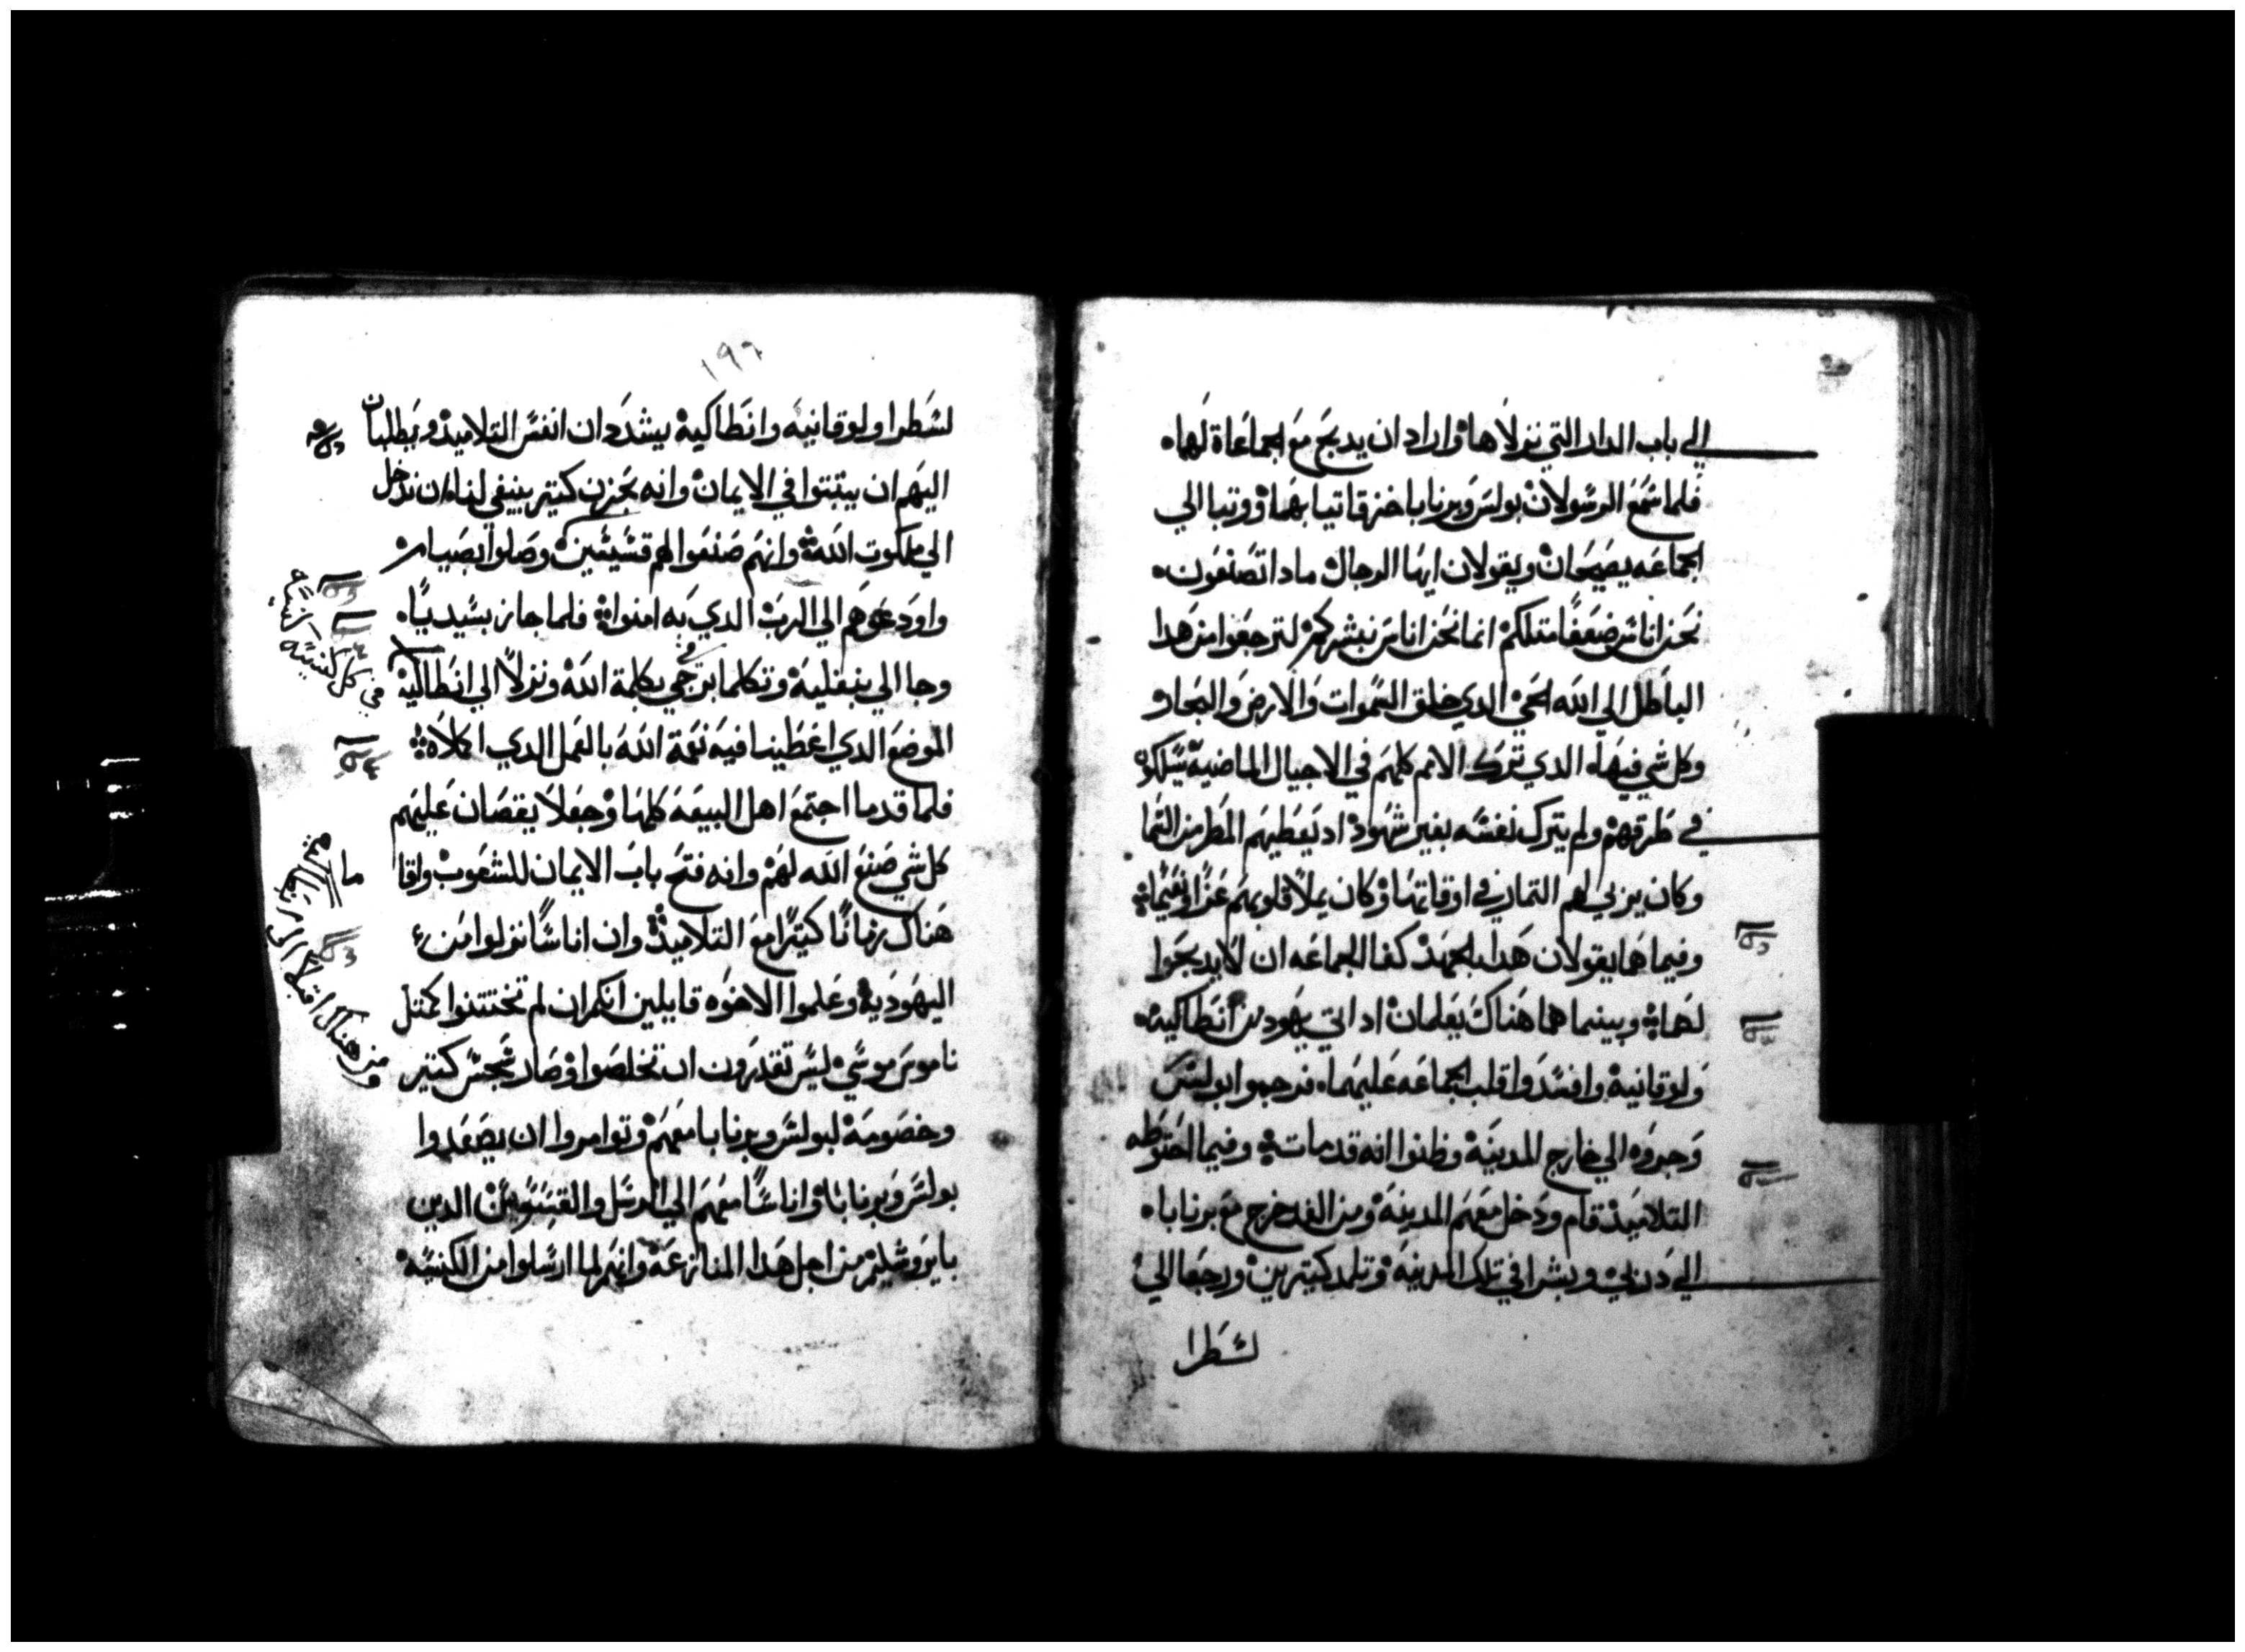 الي باب الدار التي نزلاها واراد ان يدبح مع الجماعاة لهما
فلما سمع الرسولان بولس وبرنابا خزقا تيابهما ووتبا الي
الجماعه يصيحان ويقولان ايها الرجال مادا تصنعون
نحن اناس ضعفا متلكم انما نحن اناس نبشركم لترجعوا من هدا
الباطل الي الله الحي الدي خلق السموات والارض والبحار
وكل شي فيها الدي ترك الامم كلهم في الاجيال الماضية يسلكو
في طرقهم ولم يترك نفسه بغير شهود اد يعطيهم المطر من السما
وكان يربي لهم التمار في اوقاتها وكان يملا قلوبهم عزا ونعيما
وفيما هما يقولان هدا بالجهد كفا الجماعه ان لا يدبحوا
لهما وبينما هما هناك يعلمان اد اتي يهود من انطاكية
ولوقانية وافسدوا قلب الجماعه عليهما فرجموا بولس
وجروه الي خارج المدينة وظنوا انه قد مات وفيما احتوطه
التلاميد قام ودخل معهم المدينة ومن الغد خرج مع برنابا
الي دربي وبشرا في تلك المدينة وتلمدا كتيرين ورجعا الي
لسطرا
١٩٦
لسطرا ولوقانيه وانطاكية يشددان انفس التلاميد ويطلبان
اليهم ان يتبتوا في الايمان وانه بحزن كتير ينبغي لنا ان ندخل
الي ملكوت الله وانهم صنعوا لهم قسيسين وصلوا بصيام
واودعوهم الي الرب الدي به امنوا فلما جاز بسيديا
في كل كنيسه
وجا الي بنفلية وتكلما في برجي بكلمة الله ونزلا الي انطاكية
الموضع الدي اعطينا فيه نعمة الله بالعمل الدي اكلاه
فلما قدما اجتمع اهل البيعه كلها وجعلا يقصان عليهم
كل شي صنع الله لهم وانه فتح باب الايمان للشعوب واقا
ما
هناك زمانا كتيرا مع التلاميد وان اناسا نزلوا من
ومن هناك اقبلا الي
اليهودية وعلموا الاخوه قايلين انكم ان لم تختتنوا كمتل
ناموس موسي ليس تقدرون ان تخلصوا وصار سجس كتير
وخصومة لبولس وبرنابا معهم وتوامروا ان يصعدوا
بولس وبرنابا واناسا معهم الي الرسل والقسوس الدين
بايروشليم من اجل هدا المنازعة وانهم لما ارسلوا من الكنيسة